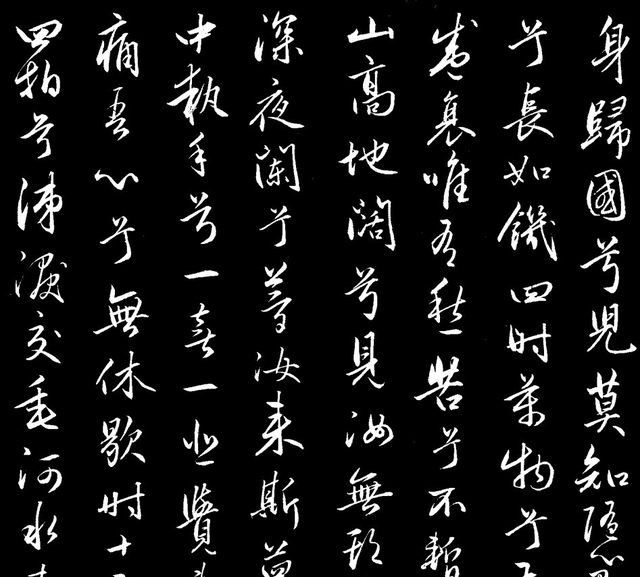 身歸國兮兒莫知隨心
兮長如饑四時萬物兮
盛衰唯有愁苦兮不暫
山高地闊兮見汝無期
深夜闌兮夢汝來斯夢
中執手兮一喜一悲覺
痛吾心兮無休歇時十
四拍兮涕淚交垂河水